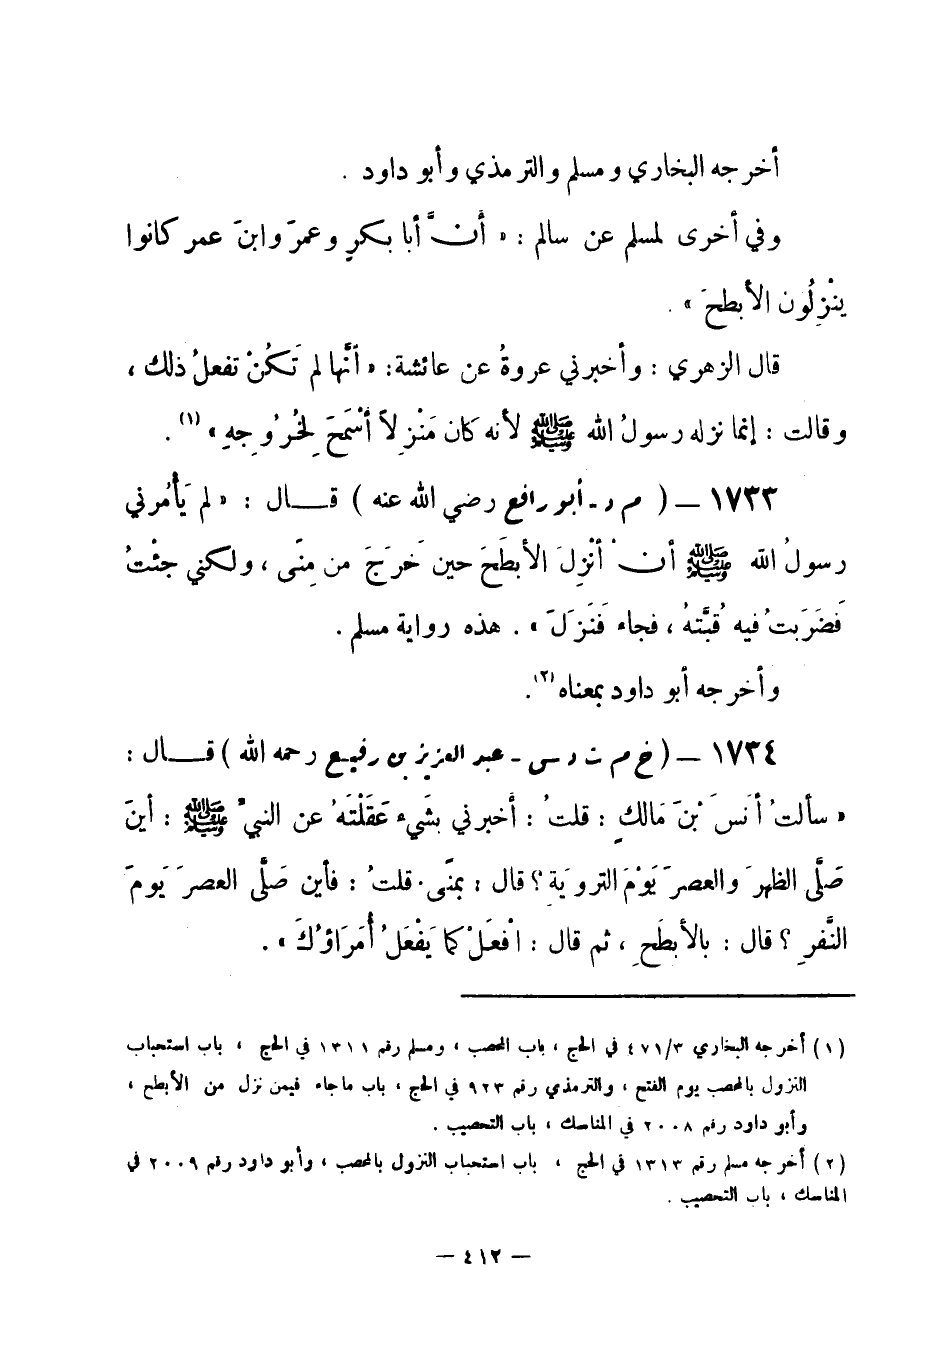 أخرجه البخاري ومسلم والترمذي وأبو داود .
وفي أخرى لمسلم عن سالم : « أنَّ أبا بكرٍ وعمرَ وابنَ عمر كانوا
ينْزِلُون الأبطحَ » .
قال الزهري : وأخبرني عروةُ عن عائشة: « أنَّها لم تَكُنْ تفعلُ ذلك ،
وقالت : إنما نزله رسولُ الله ﷺ لأنه كان مَنْزِلاً أسْمَحَ لِخُرُوجِهِ » (١) .
١٧٣٣ – ( م د - أبو رافع رضي الله عنه ) قـــال : « لم يَأْمُرني
رسولُ الله ﷺ أنْ أنْزِلَ الأبطَحَ حين خَرجَ من مِنًى ، ولكني جئْتُ
فَضَرَبتُ فيه قُبَّتهُ ، فجاء فَنَزَلَ » . هذه رواية مسلم .
وأخرجه أبو داود بمعناه (٢) .
١٧٣٤ – ( خ م ت د س - عبد العزيز بن رفيع رحمه الله ) قـــال :
« سألتُ أنَسَ بْنَ مَالكٍ : قلتُ : أخبرني بشَيء عَقَلْتَهُ عن النبيِّ ﷺ : أينَ
صَلَّى الظهرَ والعصرَ يَوْمَ التروِيَةِ ؟ قال : بمنًى . قلتُ : فأين صَلَّى العصرَ يَومَ
النَّفرِ ؟ قال : بالأبطَحِ ، ثم قال : افْعَلْ كما يَفْعَلُ أُمَرَاؤُكَ » .
(١) أخرجه البخاري ٣/ ٤٧١ في الحج ، باب المحصب ، ومسلم رقم ١٣١١ في الحج ، باب استحباب
النزول بالمحصب يوم الفتح ، والترمذي رقم ٩٢٣ في الحج ، باب ماجاء فيمن نزل من الأبطح ،
وأبو داود رقم ٢٠٠٨ في المناسك ، باب التحصيب .
(٢) أخرجه مسلم رقم ١٣١٣ في الحج ، باب استحباب النزول بالمحصب ، وأبو داود رقم ٢٠٠٩ في
المناسك ، باب التحصيب .
– ٤١٢ –